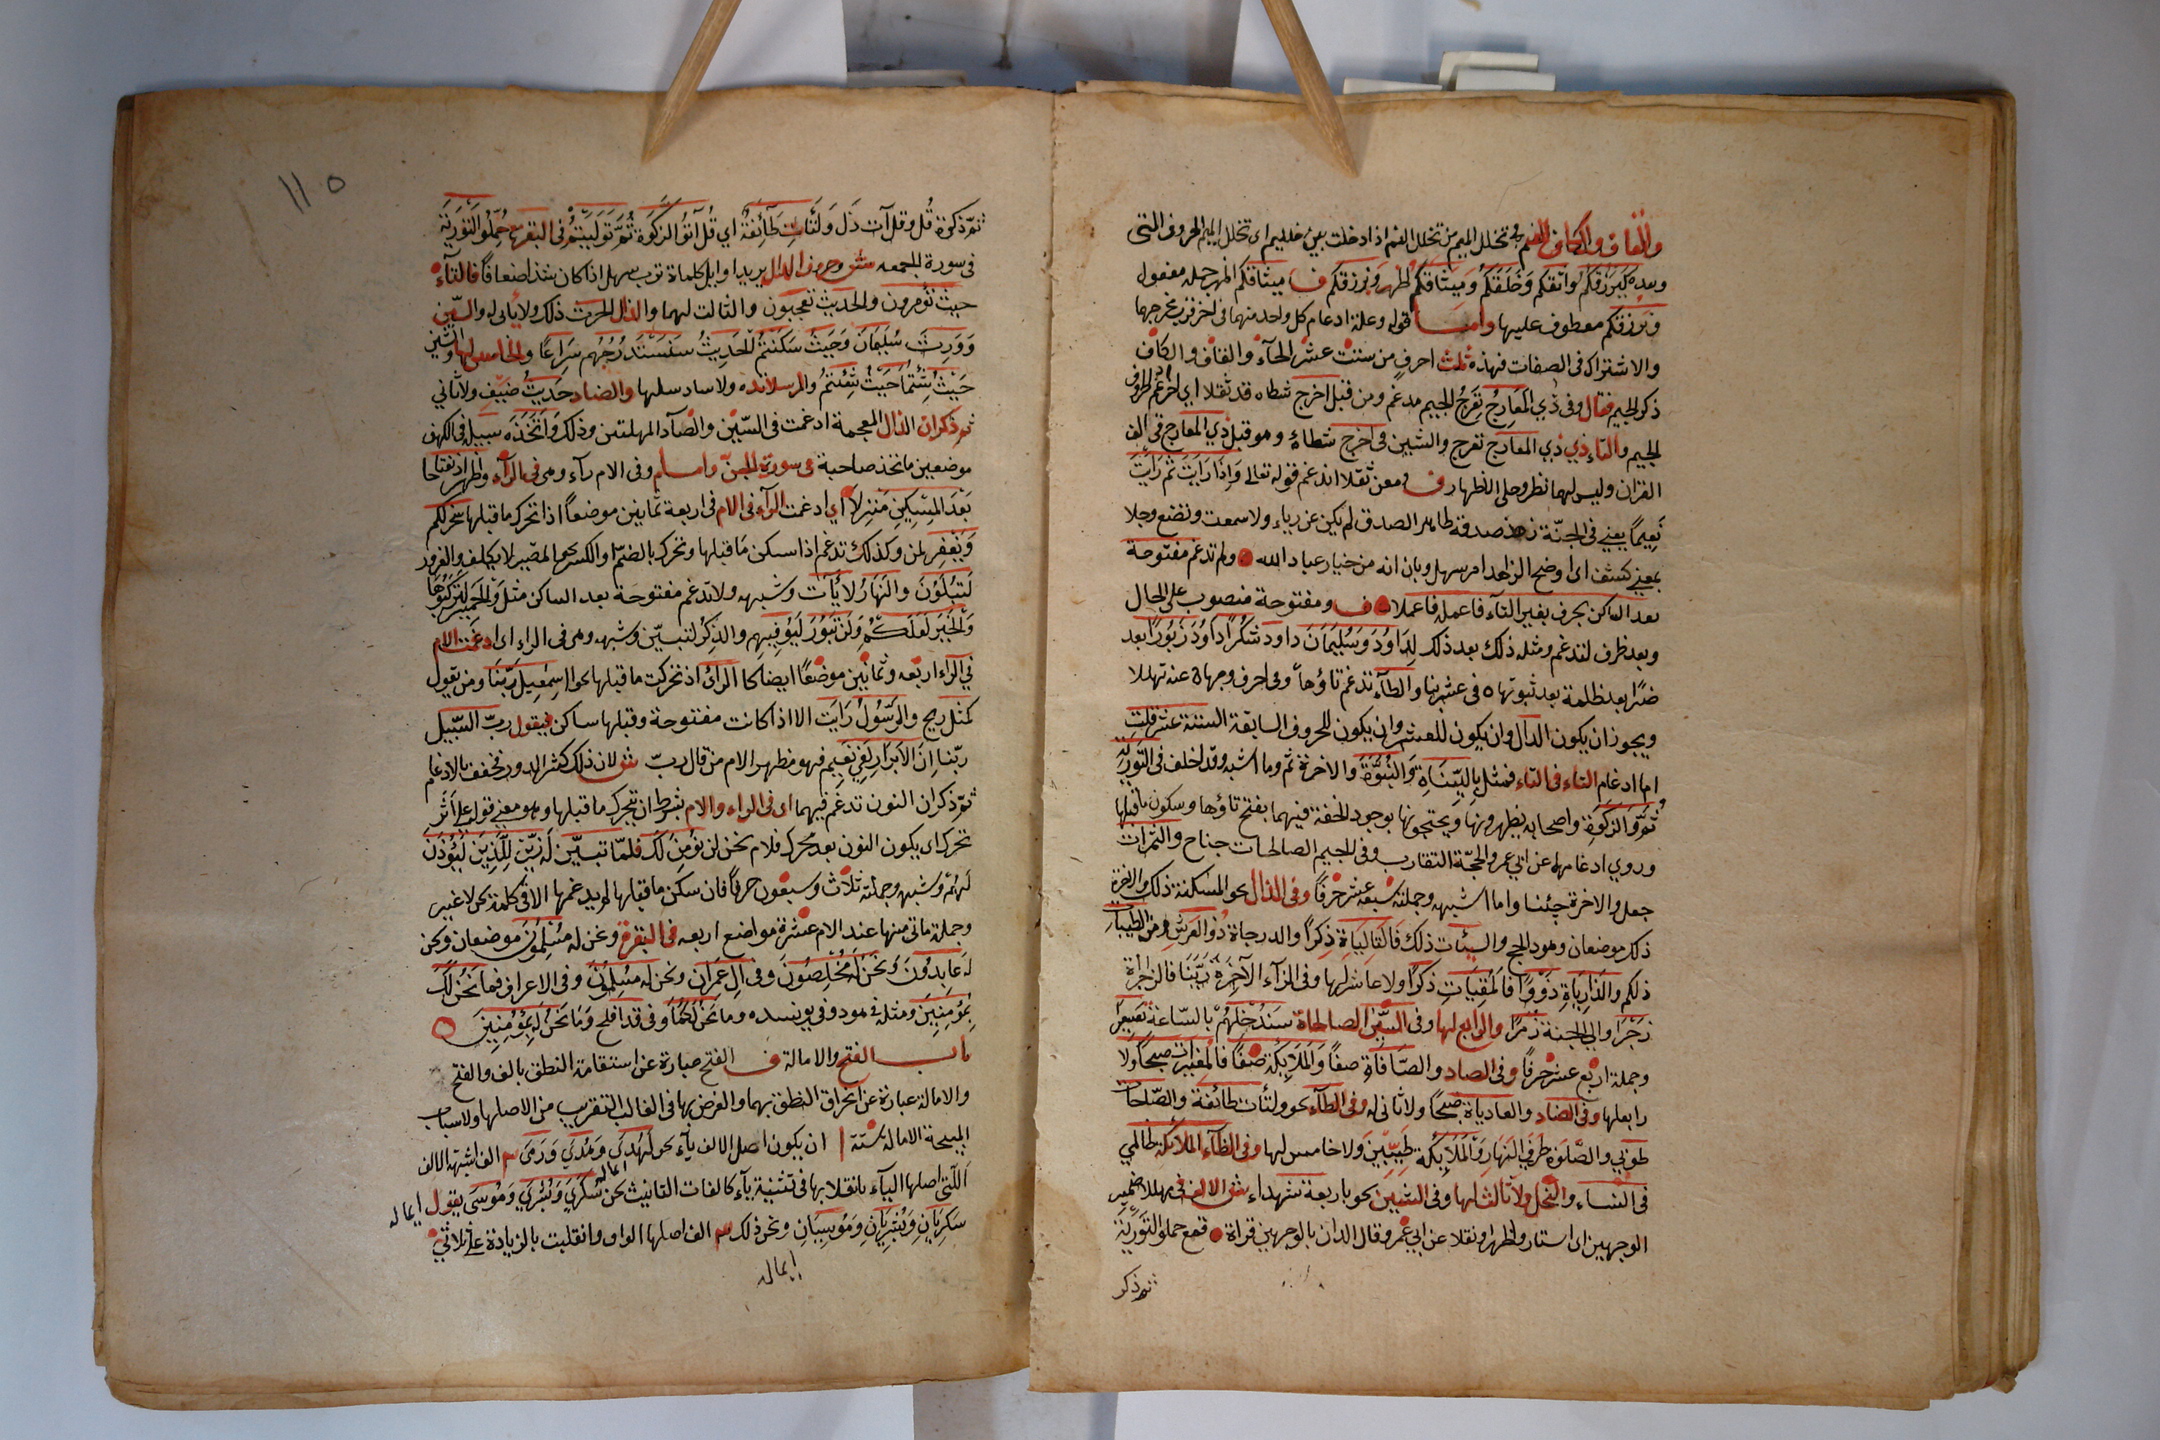 والقاف والكاف الضم في تخلل الميم من تخلل الفم اذا دخلت بين خلليم اى تخلل الميم الحروف التى
وبعده كيرزقكم واثقكم وخلقكم وميثاقكم اظهر ونرزقكم ف ميثاقكم المهرجمله مفعول
ونرزقكم معطوف عليها واما قوله وعلة ادغام كل واحد منهما فى اخر قرب مخرجهما
والاشتراك فى الصفات فهذه ثلث احرف من ستت عشر الحآء والقاف والكاف
ذكر الجيم فقال وفى ذي المعارج تعرج الجيم مدغم ومن قبل اخرج شطاه قد تثقلا اي ادغم الحروف
الجيم والتاء ذي ذي المعارج تعرج والشين فى اخرج شطاه وهو قبل ذي المعارج فى الف
القران وليس لهما نظر وحلى الظهار ف ومعن تثقلا اندغم قوله تعالى واذا رايت ثم رايت
نعيما يعني فى الجنة زهد صدقه ظاهر الصدق لم يكن عن رياء ولا سمعت ونضع وجلا
بمعني كشف اى اوضح الزاهد امر سهل وبان انه من خيار عباد الله ولم تدغم مفتوحة
بعد الساكن بحرف بغير التآء فاعمله فاعملا ف ومفتوحة منصوب على الحال
وبعد ظرف لتدغم ومثله ذلك بعد ذلك لداود وسليمان داود شكرا داود زبورا بعد
ضرا بعد ظلمة بعد ثبوتها ٥ فى عشرها والطآء تدغم تاؤها وفى احرف وجهاة عنه تهللا
ويجوز ان يكون الدال وان يكون للعشر وان يكون للحروف السابقة الستة عشر قلت
اما ادغام التاء فى التاء فمثل بالبيناة والنبوة والاخرة ثم وما اشبه وقد اختلف فى التورية
ثم والزكوة واصحابه يظهرونها ويحتجونها بوجود الخفة فيهما بفتح تاؤها وسكون ماقبلها
وروي ادغامها عن ابي عمرو الحجة التقارب وفى الجيم الصالحات جناح والثمرات
جعل والاخرة جئنا واما اشبهه وجملته سبعه عشر حرفا وفى الذال نحو المسكنة ذلك والاخرة
ذلك موضعان وهود الحج والسيئات ذلك فالتالياة ذكرا والدرجاة ذو العرش ومن الطيبات
ذلكم والذارياة ذروا فالملقيات ذكرا ولا عاشر لها وفى الزآء الآخرة زينا فالزاجراة
زجرا والى الجنة زمرا والرابع لها وفى السين الصالحاة سندخلهم بالساعة سعيرا
وجملة اربع عشر حرفا وفى الصاد والصافاة صفا والملايكة صفا فالمغيرات صبحا ولا
رابعلها وفى الضاد والعادياة ضبحا ولا ثانى له وفى الطآء نحو ولتأت طائفة والصالحات
طوبى والصلوة طرفي النهار والملايكة طيبين ولا خامس لها وفى الظآء الملائكة ظالمي
فى النساء والنحل ولا ثالث لها وفى الشين نحو باربعة شهداء ش الالف فى تهللا ضمير
الوجهين اى استار واظهر ونقلا عن ابي عمرو وقال الدان بالوجهين قراة فمع حملوا التورية
ثم ذكر
١١٥
ثم ذكرة قل وقل آت ذل ولتأت طآئفة اي قل آتوا الزكوة ثم توليتم فى البقرة مع حملوا التورية
فى سورة للجمعه ش وحروف الدال يريد اوايل كلماة ترب سهل اذا كان شذا ضعاقا فالتآء
حيث تؤمرون والحديث تعجبون والثالت لهما والذال الحرث ذلك ولا يأتى له والسين
وورث سليمان وحيث سكنتم الحديث سنستدرجهم سراعا والخامس لها والشين
حيث شئتما حيث شئتم والمرسلاندة ولا سادسلها والضاد حديث ضيف ولا ثاني
ثم ذكر ان الذال المعجمة ادغمت فى السين والصآد المهلتمن وذلك واتخذه سبيل فى الكهف
موضعين ماتخذ صاحبة فى سورة الجن واما وفى الام رآء وهى فى الرآء واظهر اذ نفتاحا
بعد المسكين منزلا اي ادغمت الرآء فى الام فى اربعة ثمانين موضعا اذا تحرك ماقبلها سخر لكم
ويغفر لمن وكذلك تدغم اذا سكن ماقبلها وتحرك بالضم والكسر نحو المصير لا يكلف والغرور
لتبلون والنهار لايات وشبهه ولا تدغم مفتوحة بعد الساكن مثل والحمير لتركبوها
والخير لعلكم ولن تبور ليوفيهم والذكر لتبين وشبهه وهى فى الراء اى ادغمت الام
في الرآء اربعه وثمانين موضعا ايضا كا الرائ اذ تحركت ماقبلها نحو اسمعيل ربنا ومن يقول
كمثل ريح والرسول رايت الا اذا كانت مفتوحة وقبلها ساكن فيقول رب السبيل
ربنا ان الابرار لفي نعيم فهو مظهر الام من قال رب ش لان ذلك كثر الدور فخفف بالادغام
ثم ذكر ان النون تدغم فيهما اى فى الراء والام بشرط ان يتحرك ماقبلها وهو معنى قوله على اثر
تحرك اى يكون النون بعد محرك فلام نحن لن نؤمن لك فلما تبين له زين للذين ليؤذن
لهم وشبهه وجملته ثلاث وسبعون حرفا فان سكن ماقبلها لم يدغمها الا فى كلمة نحن لا غير
وجملة ماتى منها عند الام عشرة مواضع اربعه فى البقرة ونحن له مسلمون موضعان ونحن
له عابدون ونحن له مخلصون وفى ال عمران ونحن له مسلمون وفى الاعراف فما نحن لك
بمؤمنين ومثله فى هود وفى يونسده وما نحن لكما وفى قد افلح وما نحن له بمؤمنين
باب الفتح والامالة ف الفتح عبارة عن استقامة النطق بالف والفتح
والامالة عبارة عن انحراق النطق بهما والغرض بها فى الغالب التقريب من الاصلها ولاسباب
المبيحة الامالة ستة ا ان يكون اصل الالف يآء نحو لهدي وهدي ورمى ٢ الف اشبه الالف
اللتى اصلها اليآء بانقلابها فى تثنية يآء كالفات التانيث نحو سكرى وبشرى وموسى يقول امالة
سكريان وبشريان وموسيان ونحو ذلك ٣ الف اصلها الواو وانقلبت بالزيادة على ثلاثى
امالة